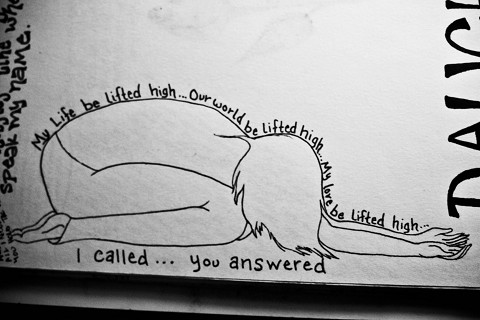 My Life be lifted high... Our world be lifted high... My love be lifted high...
I called... you answered
speak my name.